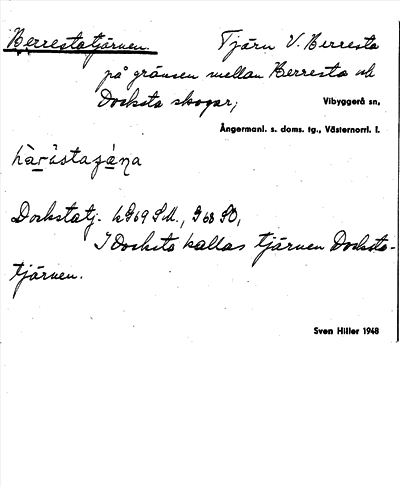 Berrestatjärnen. Tjärn V. Berresta
på gränsen mellan Berresta och
Docksta skogar; Vibyggerå sn,
Ångermanl. s. doms. tg., Västernorrl. l.
Dockstatj.
I Docksta kallas tjärnen Docksta-
tjärnen.
Sven Hiller 1948